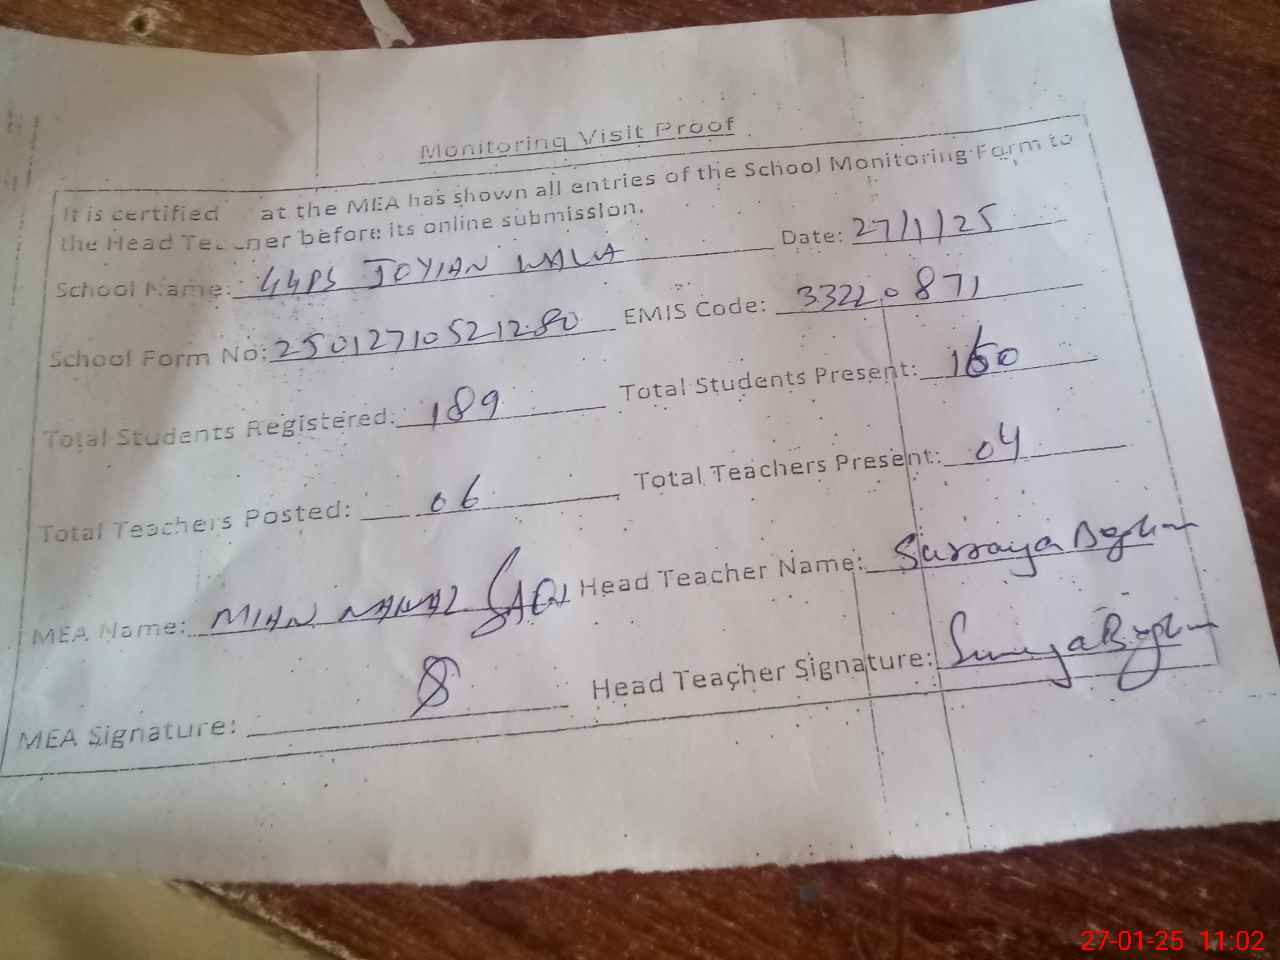 Monitoring Visit Proof
It is certified at the MEA has shown all entries of the School Monitoring Form to
the Head Teacher before its online submission.
School Name: GGPS JOYIAN WALA Date: 27/1/25
School Form No: 25012710521280 EMIS Code: 33220871
Total Students Registered: 189 Total Students Present: 160
Total Teachers Posted: 06 Total Teachers Present: 04
MEA Name: MIAN NAWAZ Head Teacher Name: Surraya Begum
MEA Signature: Head Teacher Signature:
27-01-25 11:02